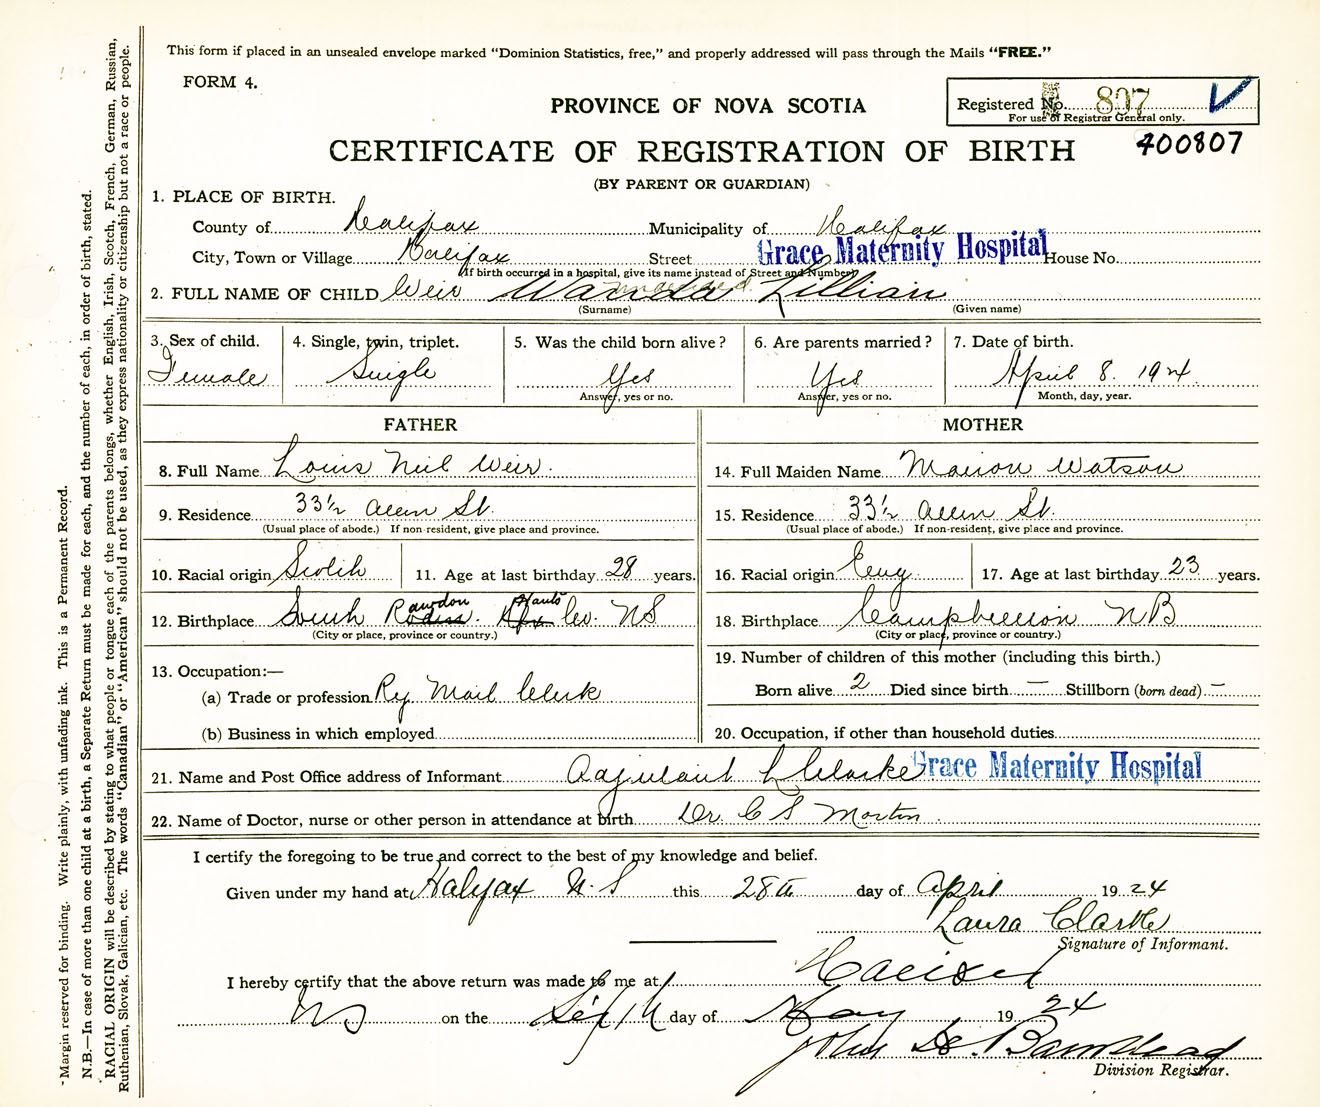 This form if placed in an unsealed envelope marked “Dominion Statistics, free,” and properly addressed will pass through the Mails “FREE.”
FORM 4.
PROVINCE OF NOVA SCOTIA
Registered No. 807
For use of Registrar General only.
400807
CERTIFICATE OF REGISTRATION OF BIRTH
(BY PARENT OR GUARDIAN)
1. PLACE OF BIRTH.
County of Halifax Municipality of Halifax
City, Town or Village Halifax Street Grace Maternity Hospital House No.
(If birth occurred in a hospital, give its name instead of Street and Number)
2. FULL NAME OF CHILD Weir Wanda Lillian
(Surname) (Given name)
3. Sex of child. 4. Single, twin, triplet. 5. Was the child born alive? 6. Are parents married? 7. Date of birth.
Female Single Yes Yes April 8. 1924.
Answer, yes or no. Answer, yes or no. Month, day, year.
FATHER MOTHER
8. Full Name Louis Neil Weir. 14. Full Maiden Name Marion Watson
9. Residence 33½ Allen St. 15. Residence 33½ Allen St.
(Usual place of abode.) If non-resident, give place and province. (Usual place of abode.) If non-resident, give place and province.
10. Racial origin Scotch 11. Age at last birthday 28 years. 16. Racial origin Eng 17. Age at last birthday 23 years.
12. Birthplace South Rawdon Hants Co. NS 18. Birthplace Campbellton NB
(City or place, province or country.) (City or place, province or country.)
13. Occupation:— 19. Number of children of this mother (including this birth.)
(a) Trade or profession Ry Mail Clerk Born alive 2 Died since birth — Stillborn (born dead) —
(b) Business in which employed 20. Occupation, if other than household duties
21. Name and Post Office address of Informant Adjutant L Clarke Grace Maternity Hospital
22. Name of Doctor, nurse or other person in attendance at birth Dr. C S Morton.
I certify the foregoing to be true and correct to the best of my knowledge and belief.
Given under my hand at Halifax N.S this 28th day of April 1924
Laura Clarke
Signature of Informant.
I hereby certify that the above return was made to me at Halifax
NS on the day of May 1924
John
Division Registrar.
Margin reserved for binding. Write plainly, with unfading ink. This is a Permanent Record.
N.B.—In case of more than one child at a birth, a Separate Return must be made for each, and the number of each, in order of birth, stated.
RACIAL ORIGIN will be described by stating to what people or tongue each of the parents belongs, whether English, Irish, Scotch, French, German, Russian,
Ruthenian, Slovak, Galician, etc. The words “Canadian” or “American” should not be used, as they express nationality or citizenship but not a race or people.